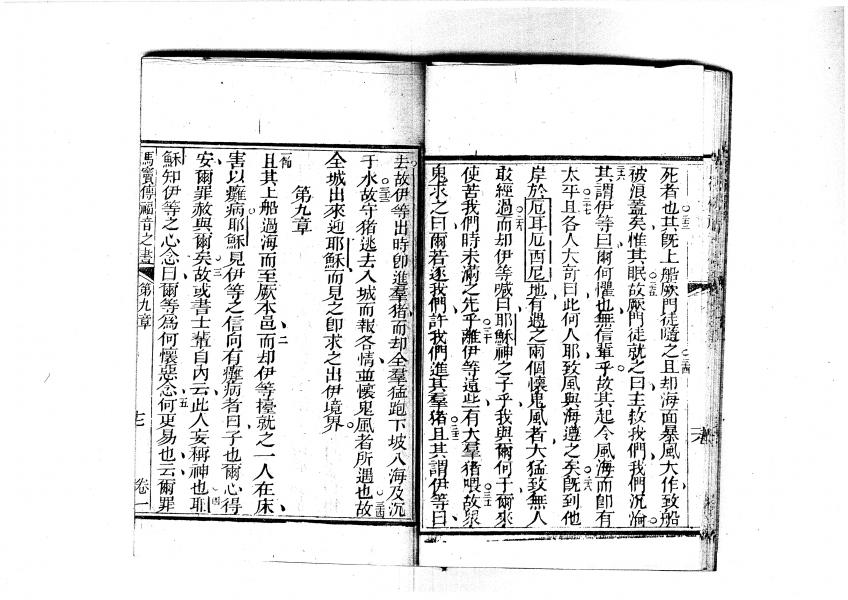 死者也其既上船厥門徒隨之且却海面暴風大作致船
被浪蓋矣惟其眠故厥門徒就之曰主救我們我們沉淪
其謂伊等曰爾何懼也無信輩乎故其起令風海而即有
太平且各人大奇曰此何人耶致風與海遵之矣既到他
岸於厄耳厄西尼地有遇之兩個懷鬼風者大猛致無人
取經過而却伊等喊曰耶穌神之子乎我與爾何干爾來
使苦我們時未滿之先乎離伊等遠些有大羣猪喂故
鬼求之曰爾若逐我們許我們進其羣猪且其謂伊等曰
去故伊等出時即進羣猪而却全羣猛跑下坡入海及沉
于水故守猪逃去入城而報各情並懷鬼風者所遇也故
全城出來迎耶穌而見之即求之出伊境界
第九章
且其上船過海而至厥本邑而却伊等擡就之一人在床
害以癱病耶穌見伊等之信向有癱病者曰子也爾心得
安爾罪赦與爾矣故或書士輩自內云此人妄稱神也耶
穌知伊等之心念曰爾等為何懷惡念何更易也云爾罪
馬竇傳福音之書 第九章 卷一